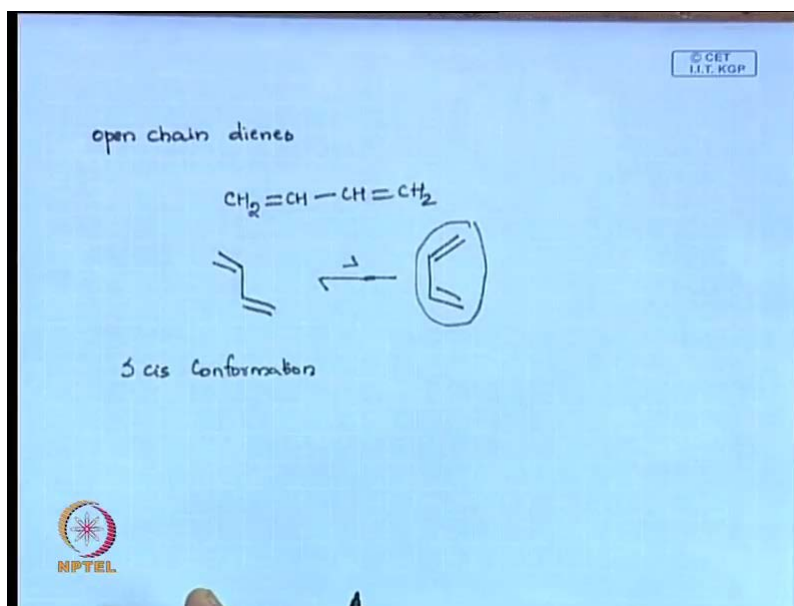 © CET
I.I.T. KGP
open chain dienes
CH₂=CH—CH=CH₂
S cis Conformation
NPTEL